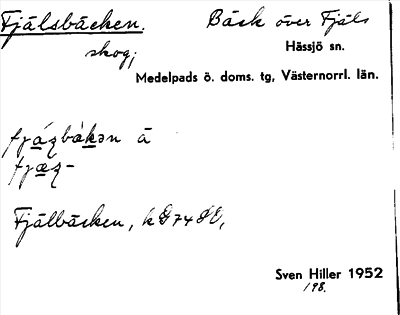 Fjälsbäcken. Bäck över Fjäls
skog; Hässjö sn.
Medelpads ö. doms. tg, Västernorrl. län.
fjázbàkən ä
fjæz-
Fjälbäcken, k G74 SV,
Sven Hiller 1952
198.